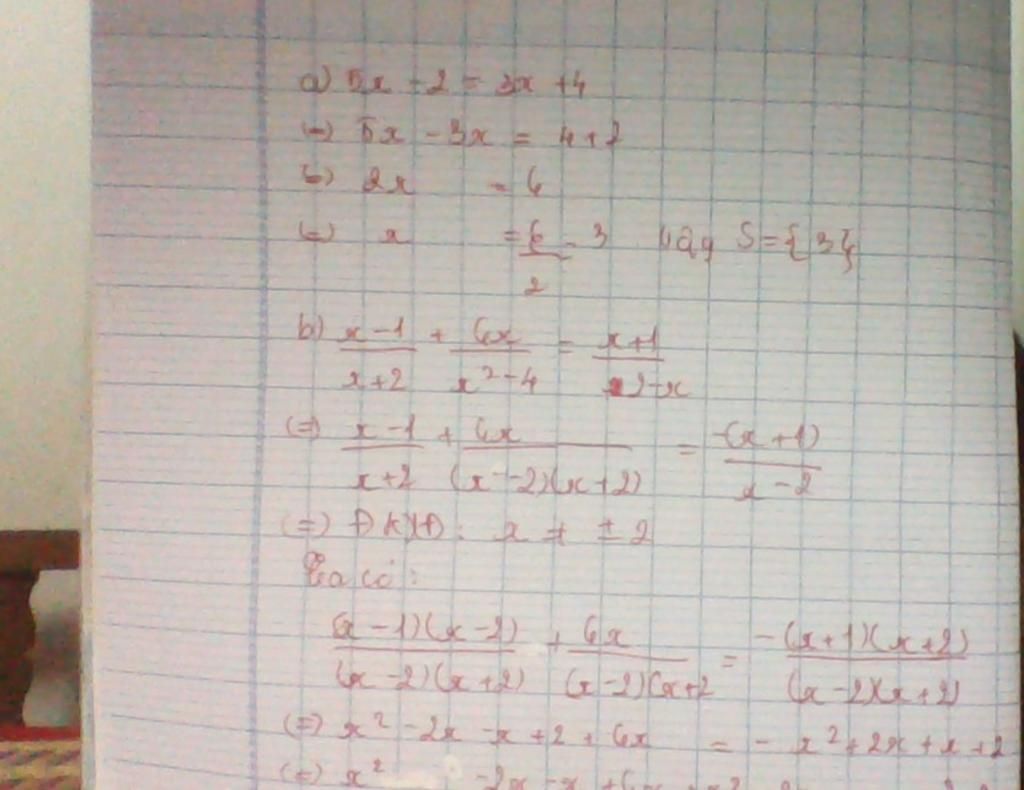 a) 5x - 2 = 3x + 4
(=) 5x - 3x = 4 + 2
(=) 2x = 6
(=) x = 6/2 = 3 Vậy S = {3}
b) (x-1)/(x+2) + 6x/(x²-4) = (x+1)/(2-x)
(=) (x-1)/(x+2) + 6x/((x-2)(x+2)) = -(x+1)/(x-2)
(=) ĐKXĐ: x ≠ ± 2
Ta có:
(x-1)(x-2)/((x-2)(x+2)) + 6x/((x-2)(x+2) = -(x+1)(x+2)/((x-2)(x+2))
(=) x² - 2x - x + 2 + 6x = - x² + 2x + x + 2
(=) x² - 2x - x + 6x